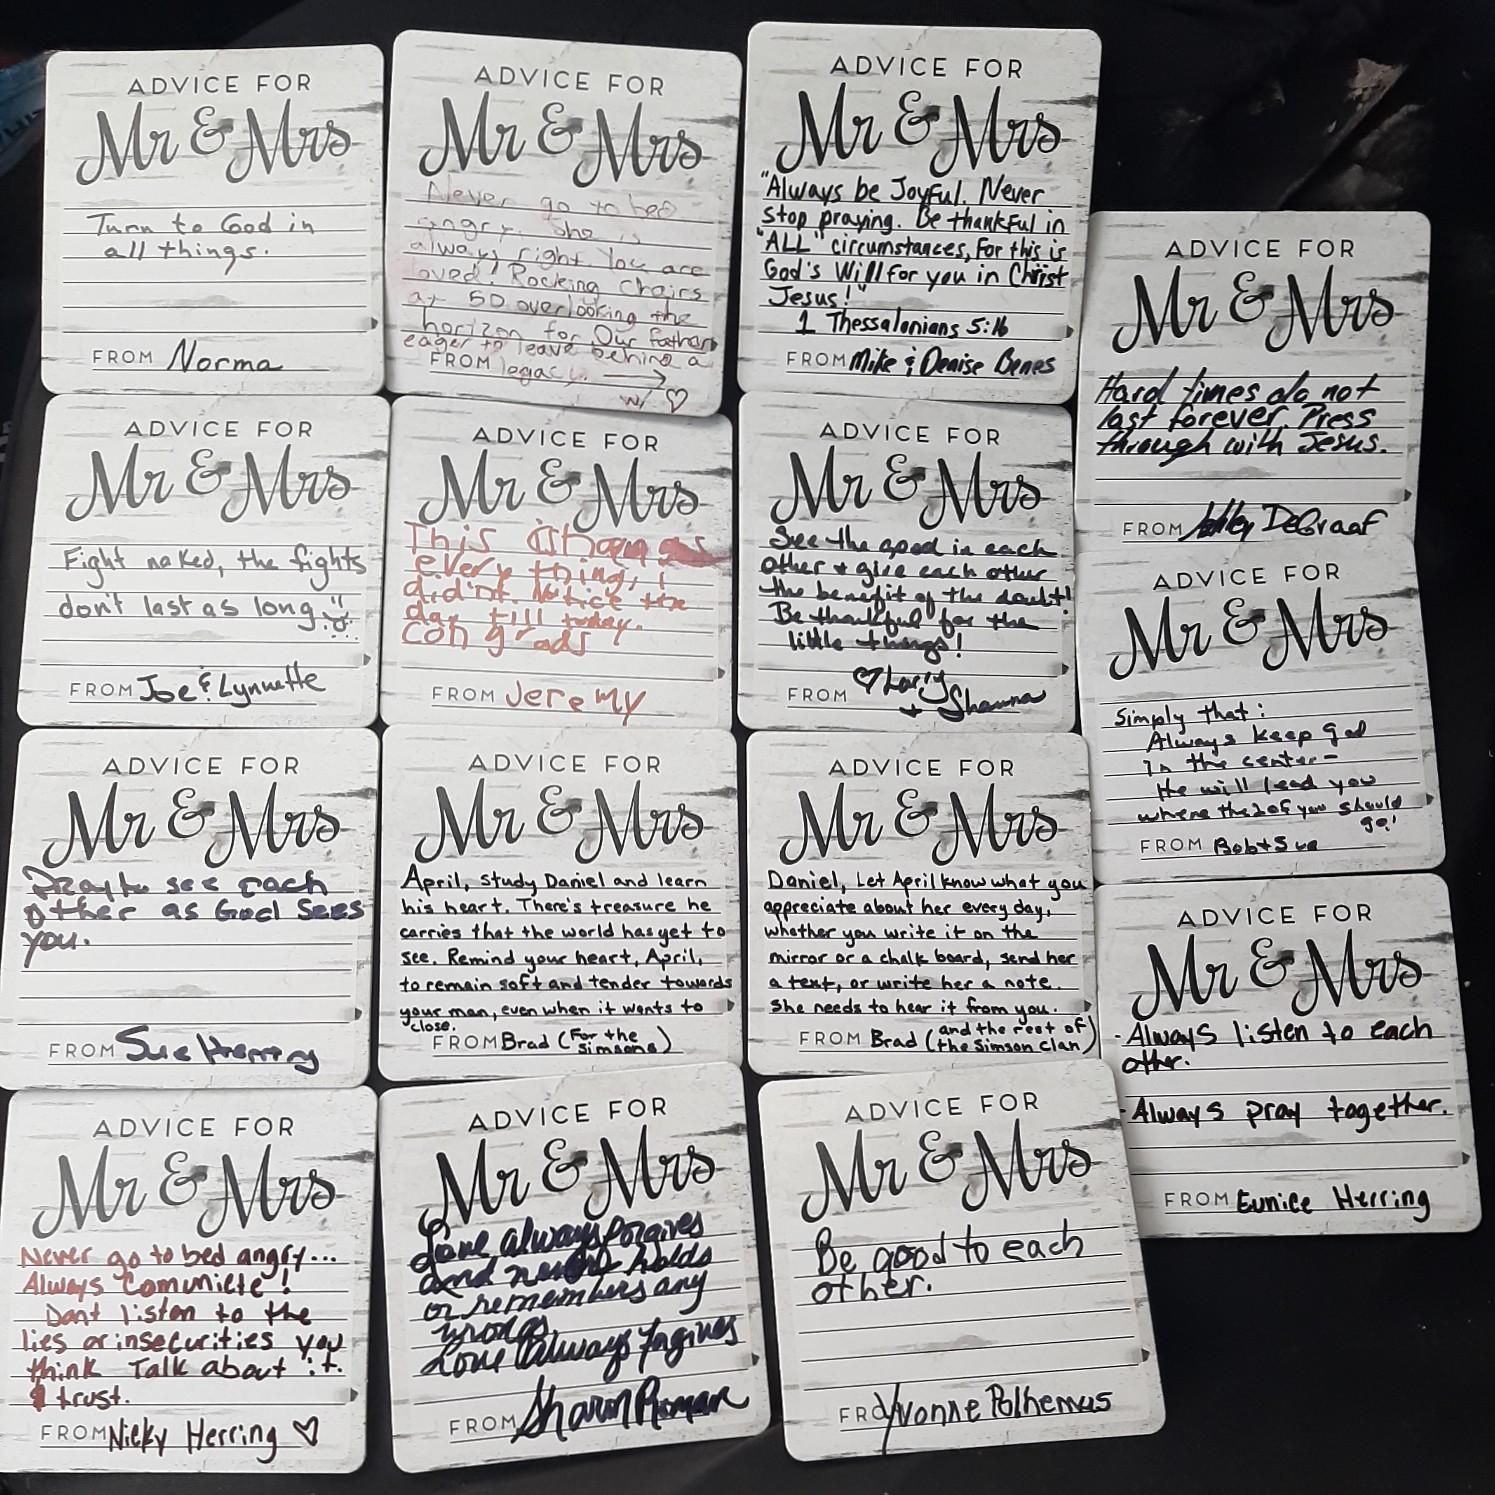 ADVICE FOR
Mr & Mrs
Turn to God in
all things.
FROM Norma
ADVICE FOR
Mr & Mrs
Never go to bed
angry. She is
always right. You are
loved! Rocking Chairs
at 50 overlooking the
horizon for Our father
eager to leave behind a
FROM legacy. →
w/ ♡
ADVICE FOR
Mr & Mrs
"Always be Joyful. Never
stop praying. Be thankful in
"ALL" circumstances, for this is
God's Will for you in Christ
Jesus!"
1 Thessalonians 5:16
FROM Mike & Denise Benes
ADVICE FOR
Mr & Mrs
Hard times do not
last forever. Press
through with Jesus.
FROM Ashley DeGraaf
ADVICE FOR
Mr & Mrs
Fight naked, the fights
don't last as long.
FROM Joe & Lynnette
ADVICE FOR
Mr & Mrs
This changes
every thing, I
didnt. Notice the
day till today.
congrads
FROM Jeremy
ADVICE FOR
Mr & Mrs
See the good in each
other + give each other
the benefit of the doubt!
Be thankful for the
little things!
♡ Larry
FROM + Shawna
ADVICE FOR
Mr & Mrs
Simply that:
Always keep god
In the center-
He will lead you
where the 2 of you should
go!
FROM Bob + Sue
ADVICE FOR
Mr & Mrs
Pray to see each
other as God sees
you.
FROM Sue Herring
ADVICE FOR
Mr & Mrs
April, study Daniel and learn
his heart. There's treasure he
carries that the world has yet to
see. Remind your heart, April,
to remain soft and tender towards
your man, even when it wants to
close.
FROM Brad (For the
Simsons)
ADVICE FOR
Mr & Mrs
Daniel, Let April know what you
appreciate about her every day,
whether you write it on the
mirror or a chalk board, send her
a text, or write her a note.
She needs to hear it from you.
FROM Brad (and the rest of
the Simson clan)
ADVICE FOR
Mr & Mrs
- Always listen to each
other.
- Always pray together.
FROM Eunice Herring
ADVICE FOR
Mr & Mrs
Never go to bed angry...
Always Comunicte!
Dont listen to the
lies or insecurities you
think Talk about it.
& trust.
FROM Nicky Herring ♡
ADVICE FOR
Mr & Mrs
Love always forgives
and never holds
or remembers any
wrongs.
Love Always forgives
FROM Sharon Roman
ADVICE FOR
Mr & Mrs
Be good to each
other.
FROM Yvonne Polhemus